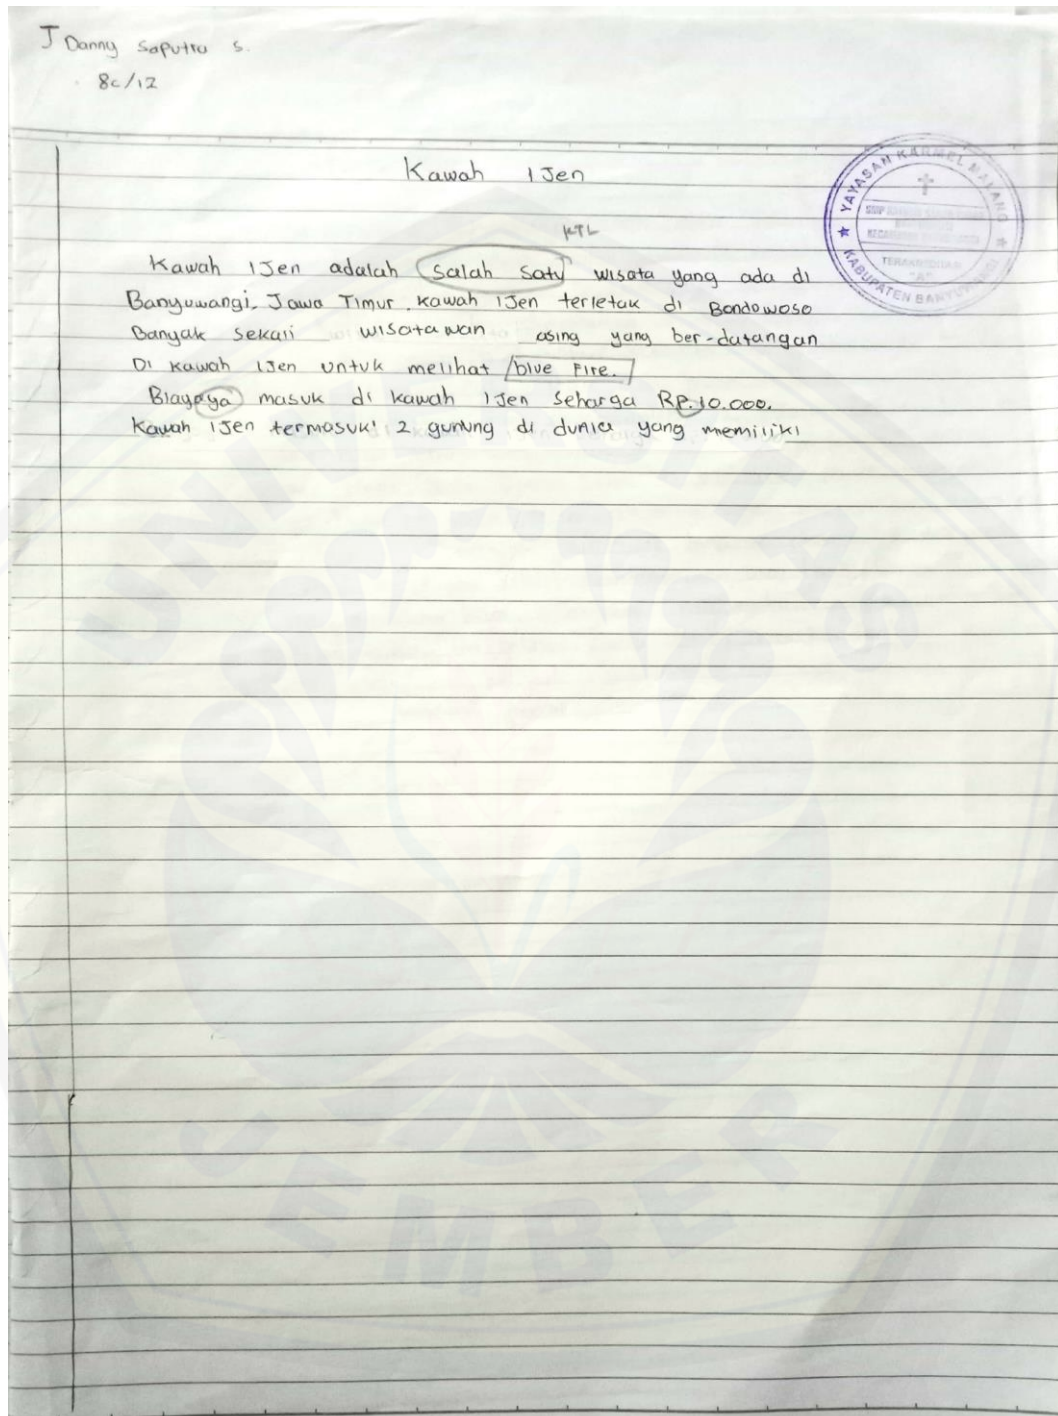 J Danny Saputra S.
8c/12
Kawah Ijen
KTL
Kawah Ijen adalah salah satu wisata yang ada di
Banyuwangi, Jawa Timur. Kawah Ijen terletak di Bondowoso
Banyak sekali wisatawan asing yang ber-datangan
Di kawah Ijen untuk melihat blue Fire.
Biayaya masuk di kawah Ijen seharga Rp.10.000.
Kawah Ijen termasuk 2 gunung di dunia yang memiliki
YAYASAN KARMEL MALANG
TERAKREDITASI
"A"
KABUPATEN BANYUWANGI
UNIVERSITAS
JEMBER